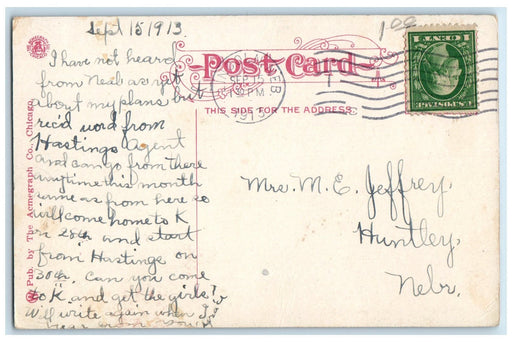 Sept 15 1913.
1.00
Post Card
THIS SIDE FOR THE ADDRESS.
SEP 15
PM
1913
NEB
U.S. POSTAGE
1 CENT 1
I have not heard
from Neab as yet
about my plans but
rec'd word from
Hastings Agent
and can go from there
anytime this month
same as from here so
will come home to K
n 28th and start
from Hastings on
30th. Can you come
to K and get the girls?
Will write again when I
hear from
Mrs. M. E. Jeffrey,
Huntley,
Nebr.
Pub. by The Acmegraph Co., Chicago.